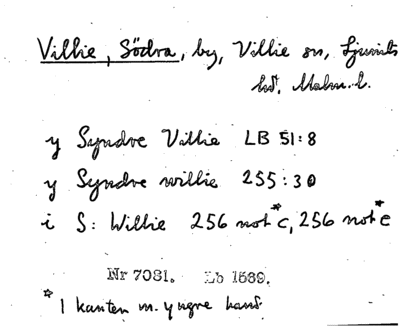 Villie, Södra, by, Villie sn, Ljunits
hd, Malm. l.
y Syndre Villie LB 51:8
y Syndre willie 255:30
i S: Willie 256 not* c, 256 not* e
Nr 7031. Lb 1639.
* I kanten m. yngre hand